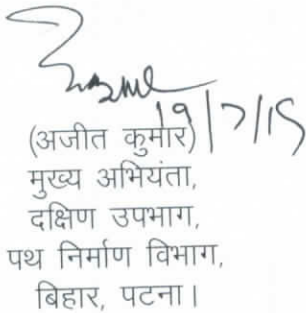 19/7/15
(अजीत कुमार)
मुख्य अभियंता,
दक्षिण उपभाग,
पथ निर्माण विभाग,
बिहार, पटना।